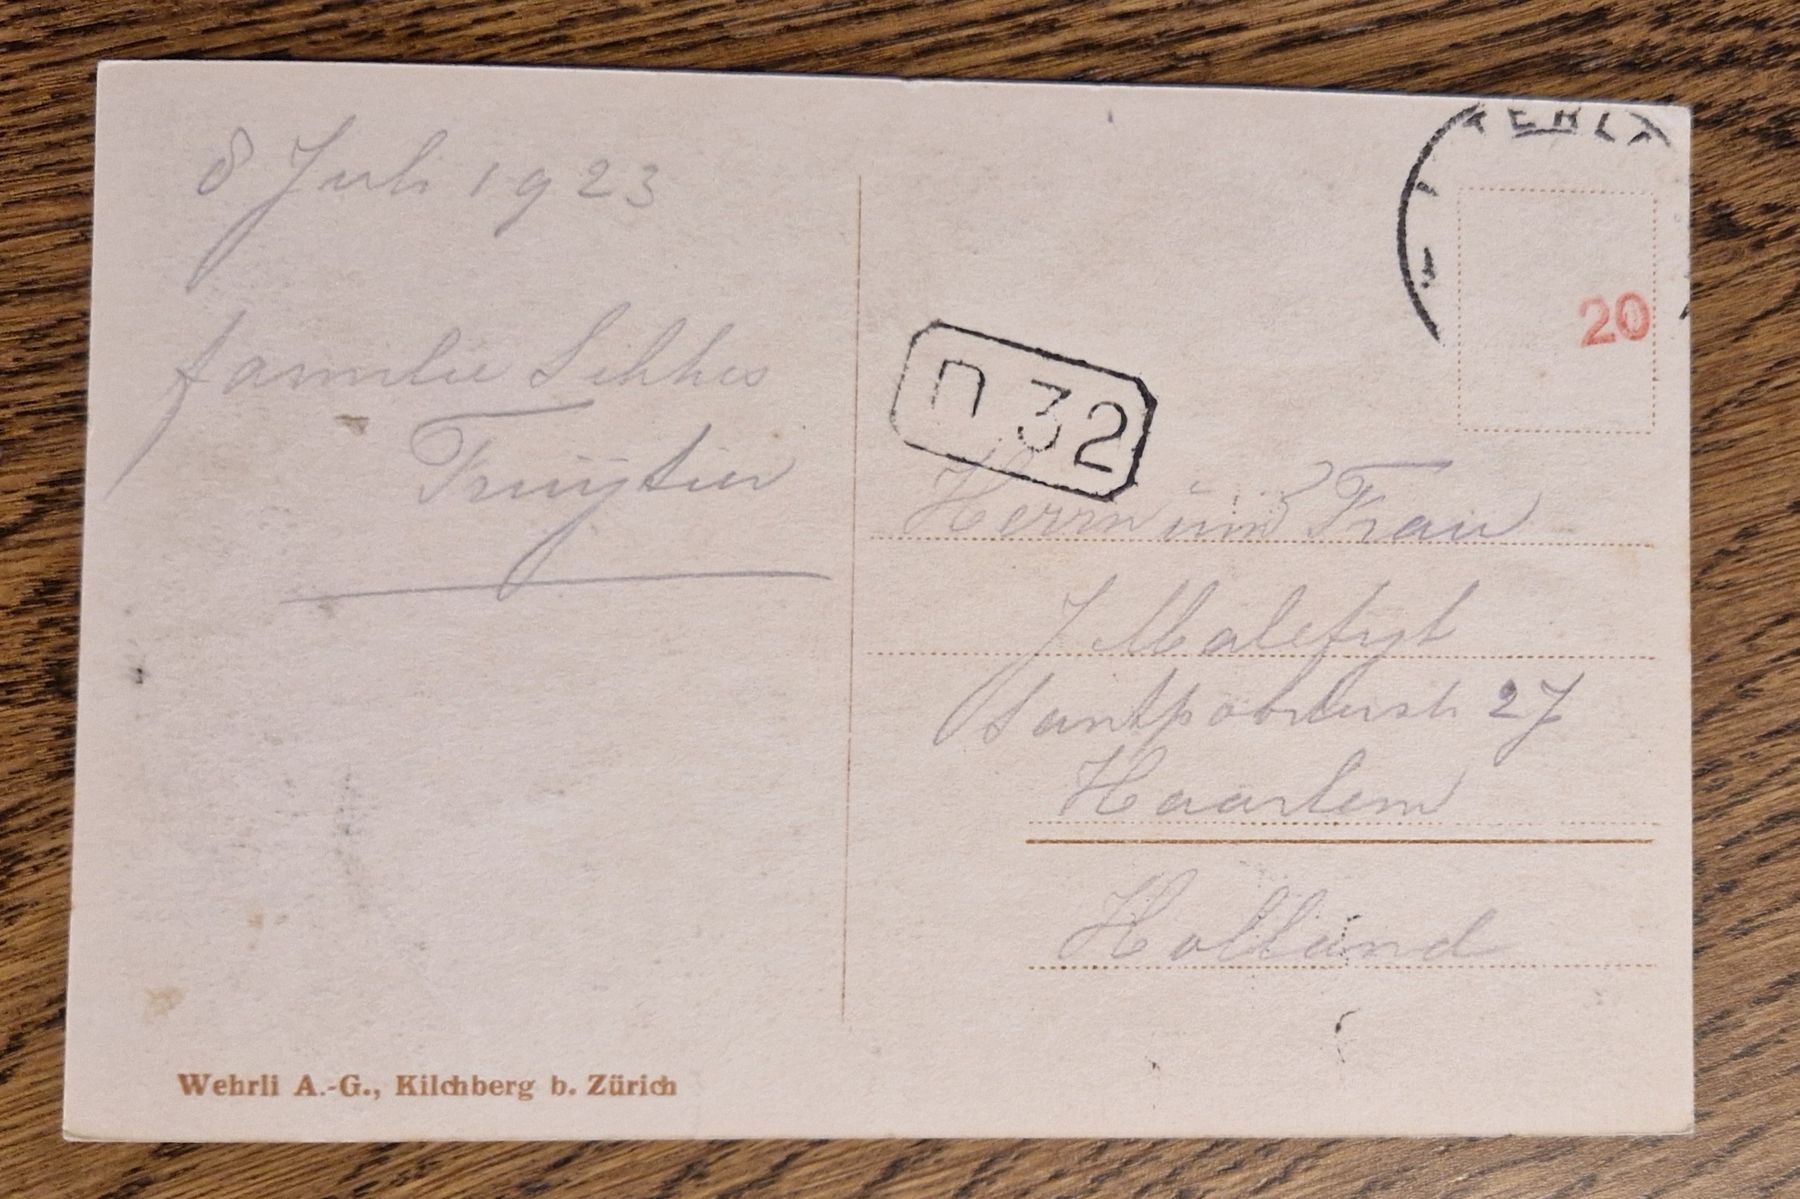 8 Juli 1923
familie
Fruijtier
20
n 32
Herrn und Frau
J Malefijt
Santpoorterstr 27
Haarlem
Holland
Wehrli A.-G., Kilchberg b. Zürich